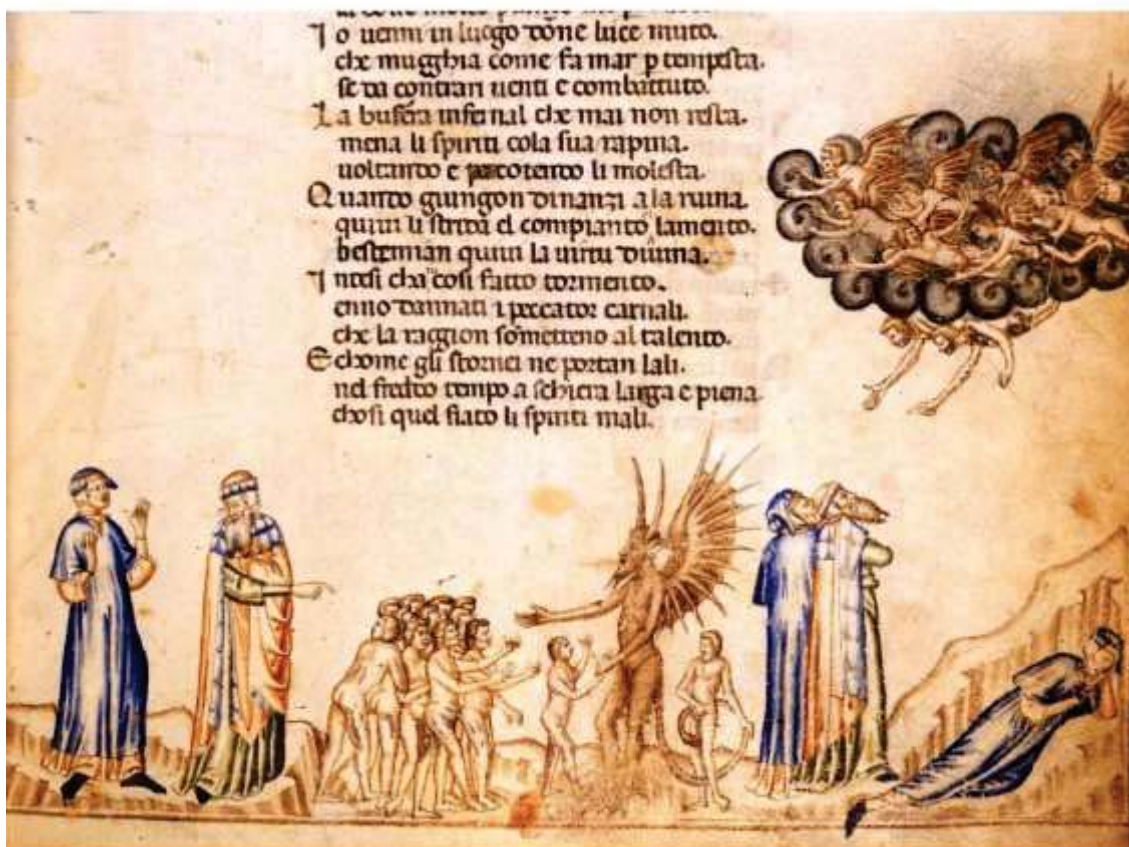 I o uenni in luogo done luce muto.
che mugghia come fa mar p tempesta.
se da contrari uenti e combattuto.
La bufera infernal che mai non resta.
mena li spiriti cola sua rapina.
uoltando e percotendo li molesta.
Quando giungon dinanzi a la ruina
quiui li strida el compianto lamento.
bestemian quiui la uirtu diuina.
I ntesi cha cosi fatto tormento.
enno dannati i peccator carnali.
che la raggion sometteno al talento.
E chome gli stornei ne portan lali.
nel freddo tempo a schiera larga e piena
chosi quel fiato li spiriti mali.